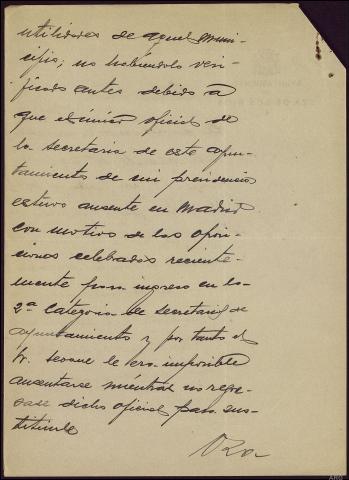 utilidades de aquel muni-
cipio; no habiéndolo veri-
ficado antes debido a
que el único oficial de
la secretaria de este ayun-
tamiento de mi presidencia
estuvo ausente en Madrid
con motivo de las oposi-
ciones celebradas reciente-
mente para ingreso en la
2ª categoria de secretarios de
ayuntamiento y por tanto al
le era imposible
ausentarse mientras no regre-
sase dicho oficial para sus-
tituirle